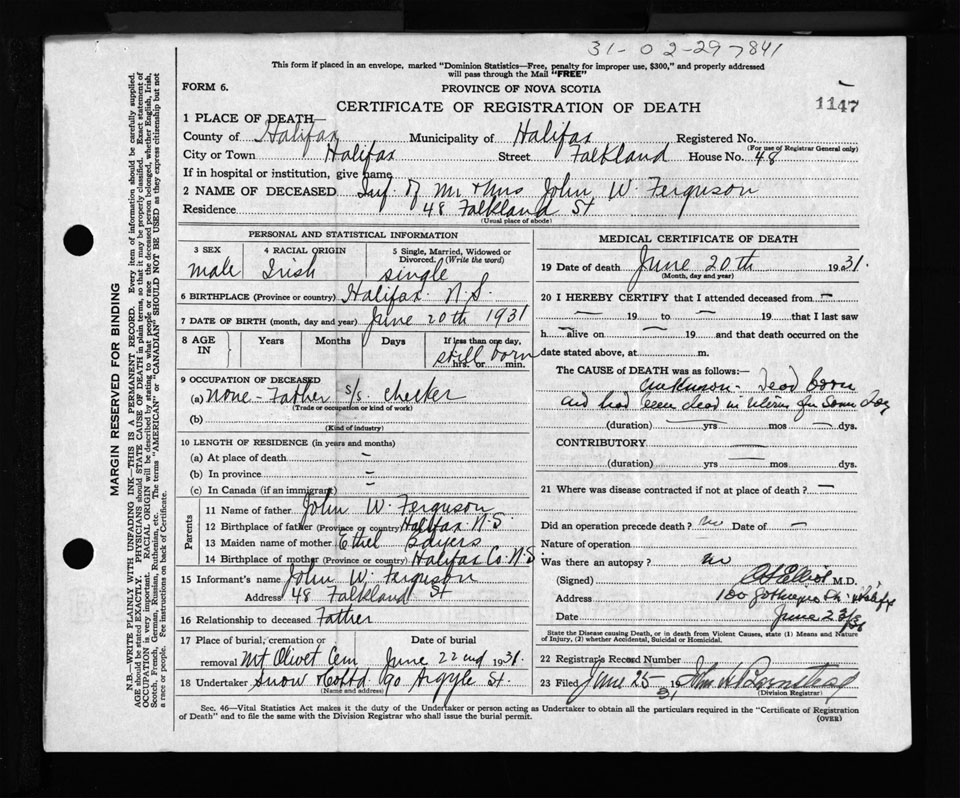 31-02-29-7841
This form if placed in an envelope, marked "Dominion Statistics—Free, penalty for improper use, $300," and properly addressed
will pass through the Mail "FREE"
FORM 6.
PROVINCE OF NOVA SCOTIA
CERTIFICATE OF REGISTRATION OF DEATH
1147
1 PLACE OF DEATH—
County of Halifax Municipality of Halifax Registered No.
(For use of Registrar General only)
City or Town Halifax Street Falkland House No. 48
If in hospital or institution, give name
2 NAME OF DECEASED Inf. of Mr & Mrs John W. Ferguson
Residence 48 Falkland St
(Usual place of abode)
PERSONAL AND STATISTICAL INFORMATION
3 SEX 4 RACIAL ORIGIN 5 Single, Married, Widowed or
Divorced. (Write the word)
male Irish single
6 BIRTHPLACE (Province or country) Halifax N.S.
7 DATE OF BIRTH (month, day and year) June 20th 1931
8 AGE
IN
Years Months Days If less than one day,
still born
hrs. or min.
9 OCCUPATION OF DECEASED
(a) none - Father s/s. checker
(Trade or occupation or kind of work)
(b)
(Kind of industry)
10 LENGTH OF RESIDENCE (in years and months)
(a) At place of death –
(b) In province –
(c) In Canada (if an immigrant) –
Parents
11 Name of father John W. Ferguson
12 Birthplace of father (Province or country) Halifax N.S.
13 Maiden name of mother Ethel
14 Birthplace of mother (Province or country) Halifax Co. N.S
15 Informant's name John W. Ferguson
Address 48 Falkland St
16 Relationship to deceased Father
17 Place of burial, cremation or Date of burial
removal Mt Olivet Cem June 22nd 1931.
18 Undertaker Snow & Co Ltd 90 Argyle St.
(Name and address)
MEDICAL CERTIFICATE OF DEATH
19 Date of death June 20th 1931.
(Month, day and year)
20 I HEREBY CERTIFY that I attended deceased from —
— 19 to — 19 that I last saw
h — alive on — 19 and that death occurred on the
date stated above, at m.
The CAUSE of DEATH was as follows:—
Dead born
and had been dead in uterus for some
(duration) — yrs mos — dys.
CONTRIBUTORY —
(duration) yrs — mos dys.
21 Where was disease contracted if not at place of death? —
Did an operation precede death? no Date of —
Nature of operation
Was there an autopsy? no
(Signed) Elliot M.D.
Address 100 Halifax
Date June 23/31
State the Disease causing Death, or in death from Violent Causes, state (1) Means and Nature
of Injury, (2) whether Accidental, Suicidal or Homicidal.
22 Registrar's Record Number
23 Filed June 25 31 John H
(Division Registrar)
Sec. 46—Vital Statistics Act makes it the duty of the Undertaker or person acting as Undertaker to obtain all the particulars required in the "Certificate of Registration
of Death" and to file the same with the Division Registrar who shall issue the burial permit.
(OVER)
MARGIN RESERVED FOR BINDING
N.B.—WRITE PLAINLY WITH UNFADING INK—THIS IS A PERMANENT RECORD. Every item of information should be carefully supplied.
AGE should be stated EXACTLY. PHYSICIANS should STATE CAUSE OF DEATH in plain terms, so that it may be properly classified. Exact statement of
OCCUPATION is very important. RACIAL ORIGIN will be described by stating to what people or race the deceased person belonged, whether English, Irish,
Scotch, French, German, Russian, Ruthenian, etc. The terms "AMERICAN" or "CANADIAN" SHOULD NOT BE USED as they express citizenship but not
a race or people. Fee instructions on back of Certificate.